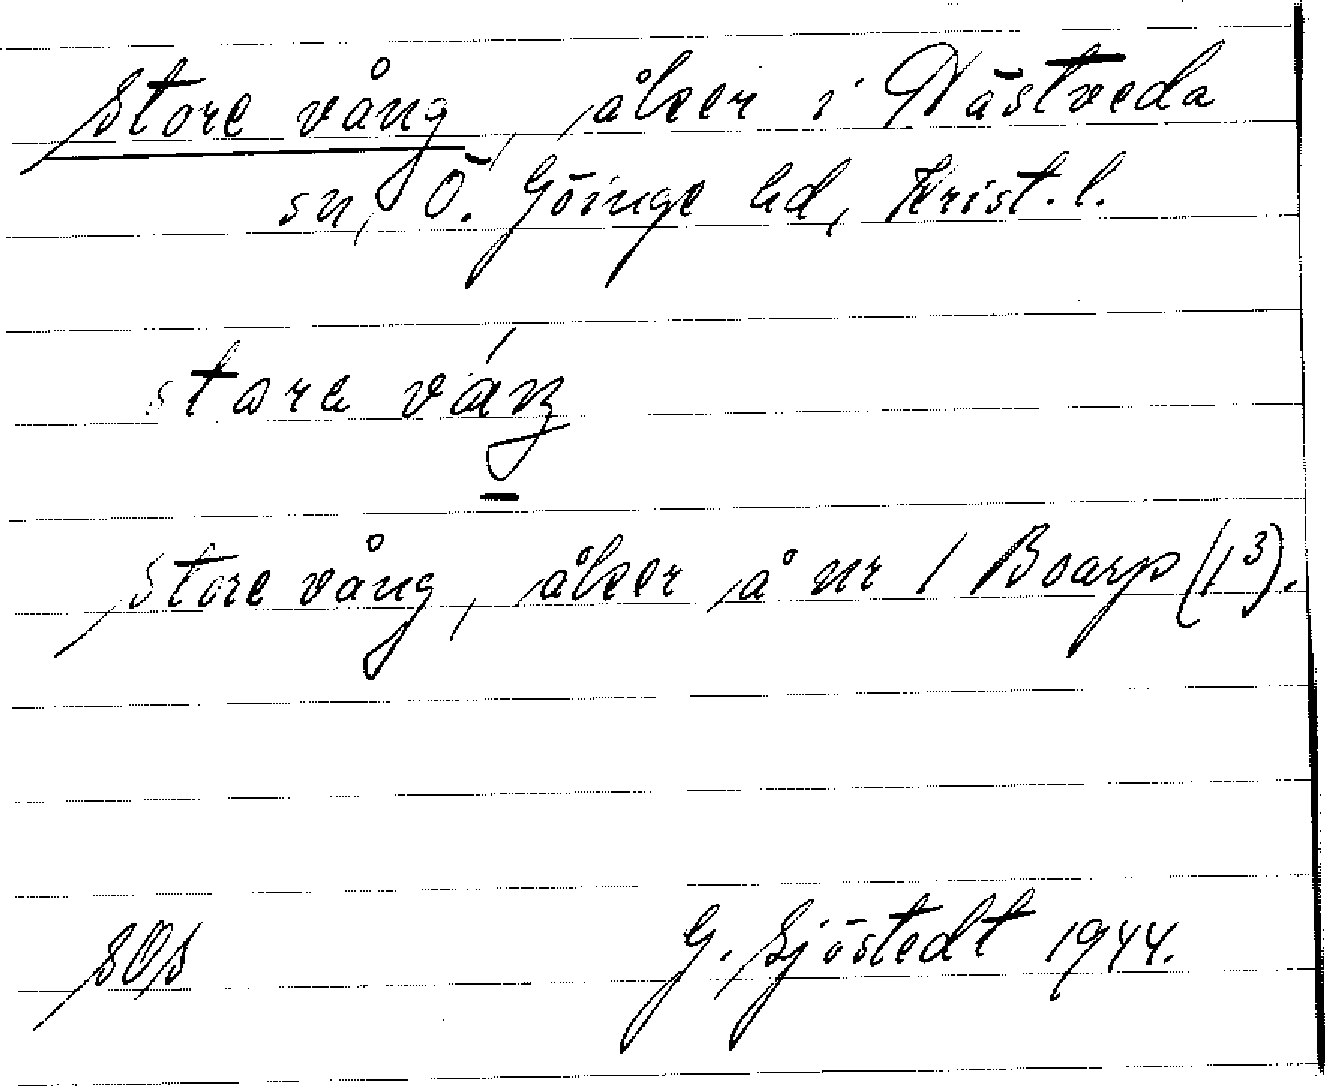 Store vång, åker i Nästveda
sn, Ö. Göinge hd, Krist. l.
store váŋ
Store vång, åker å nr 1 Boarp (1³).
SOS G. Sjöstedt 1944.